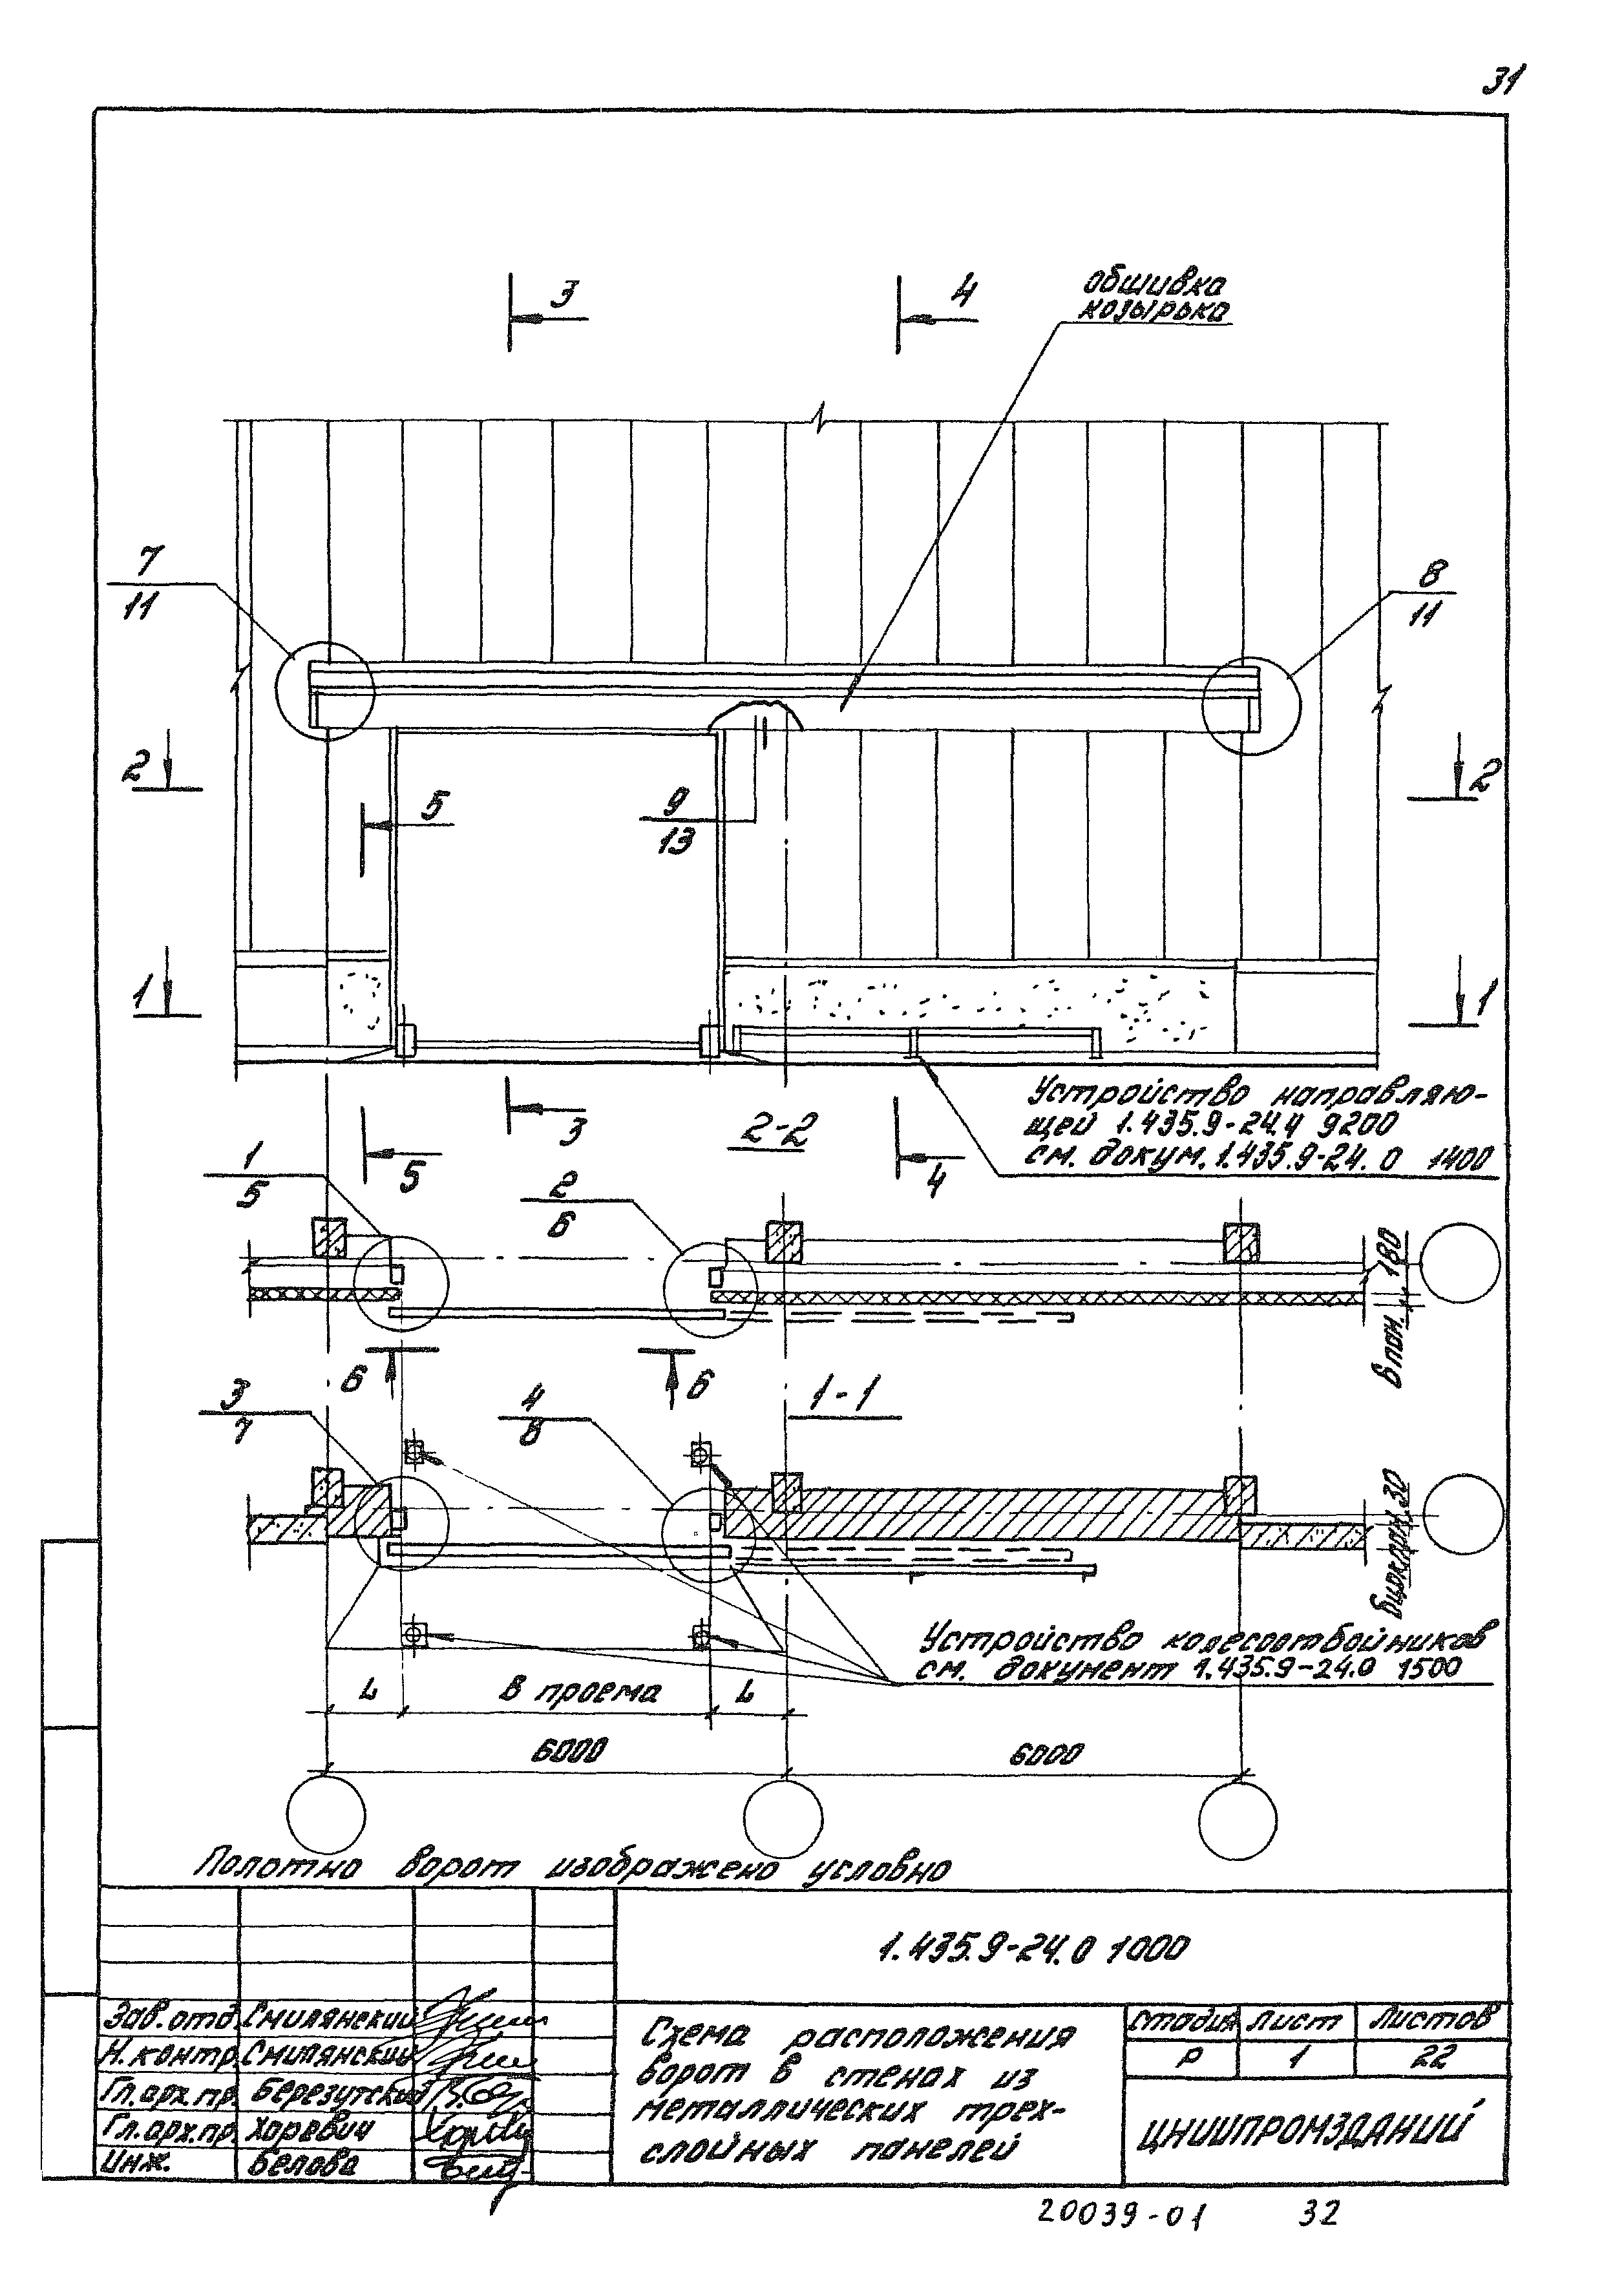 31
3
4
обшивка
козырька
7
11
8
11
2
2
5
9
13
1
1
Устройство направляю-
щей 1.435.9-24.4 9200
см. докум. 1.435.9-24.0 1400
3
2-2
5
4
1
5
2
6
180
δ пан.
6
6
3
7
4
8
1-1
30
Устройство колесоотбойников
см. документ 1.435.9-24.0 1500
L
В проема
L
6000
6000
Полотно ворот изображено условно
1.435.9-24.0 1000
Зав. отд. Смилянский
Н. контр. Смилянский
Гл. арх. пр. Березутский
Гл. арх. пр. Хоревич
Инж. Белова
Схема расположения
ворот в стенах из
металлических трех-
слойных панелей
Стадия Лист Листов
Р 1 22
ЦНИИПРОМЗДАНИЙ
20039-01 32